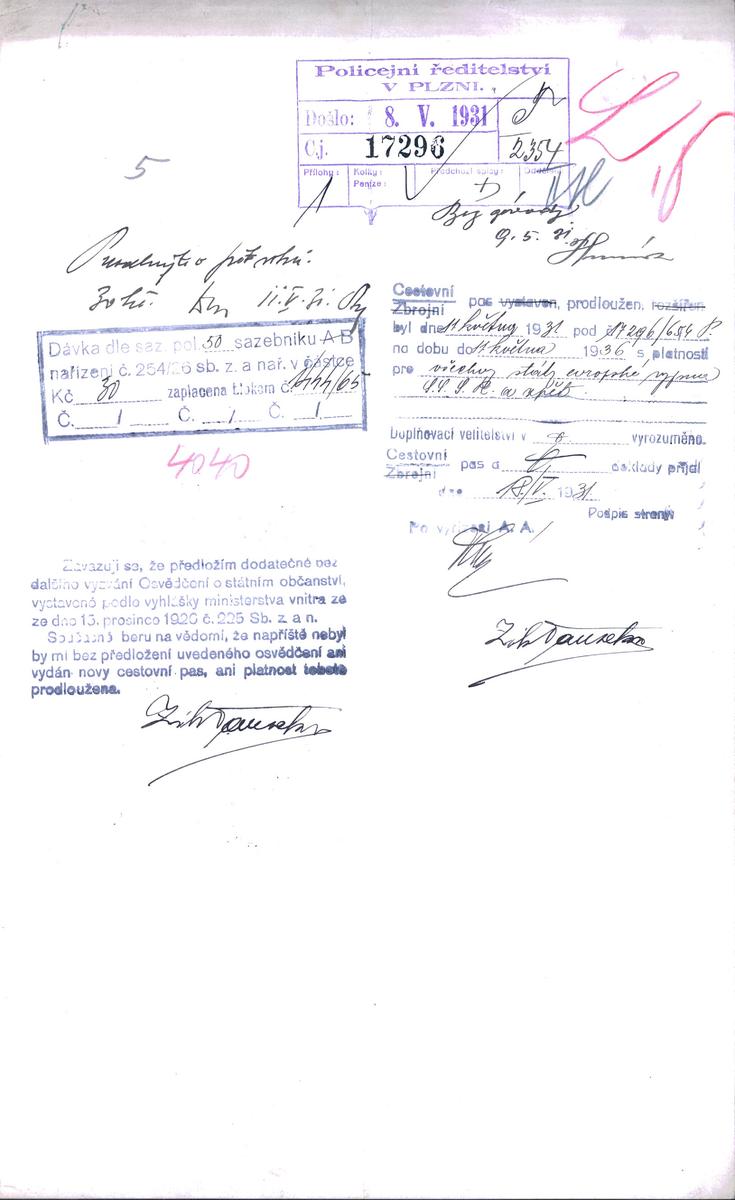 Policejní ředitelství
V PLZNI.
Došlo: 8. V. 1931
C.j. 17296
2354
Přílohy: 1
Kolky:
Peníze:
Předchozí spisy:
5
Bez závady
9. 5. 31.
Prodlužte o pět roků.
11. V. 31.
Dávka dle saz. pol. 50 sazebníku A B
nařízení č. 254/26 sb. z. a nař. v částce
Kč 30 zaplacena blokem č.
Č. / Č. / Č. /
4040
Cestovní
Zbrojní pas vystaven, prodloužen, rozšířen
byl dne května 1931 pod 17296
na dobu do května 1936 s platností
pro všechny státy evropské vyjma
S.S.S.R. a zpět.
Doplňovací velitelství v vyrozuměno.
Cestovní
Zbrojní pas a doklady přijal
dne 18/V. 1931.
Podpis strany
Po vyřízení A. A.
Zavazuji se, že předložím dodatečné bez
dalšího vyzvání Osvědčení o státním občanství,
vystavené podlo vyhlášky ministerstva vnitra ze
ze dne 13. prosince 1926 č. 225 Sb. z. a n.
Současně beru na vědomí, že napříště nebyl
by mi bez předložení uvedeného osvědčení ani
vydán nový cestovní pas, ani platnost tohoto
prodloužena.